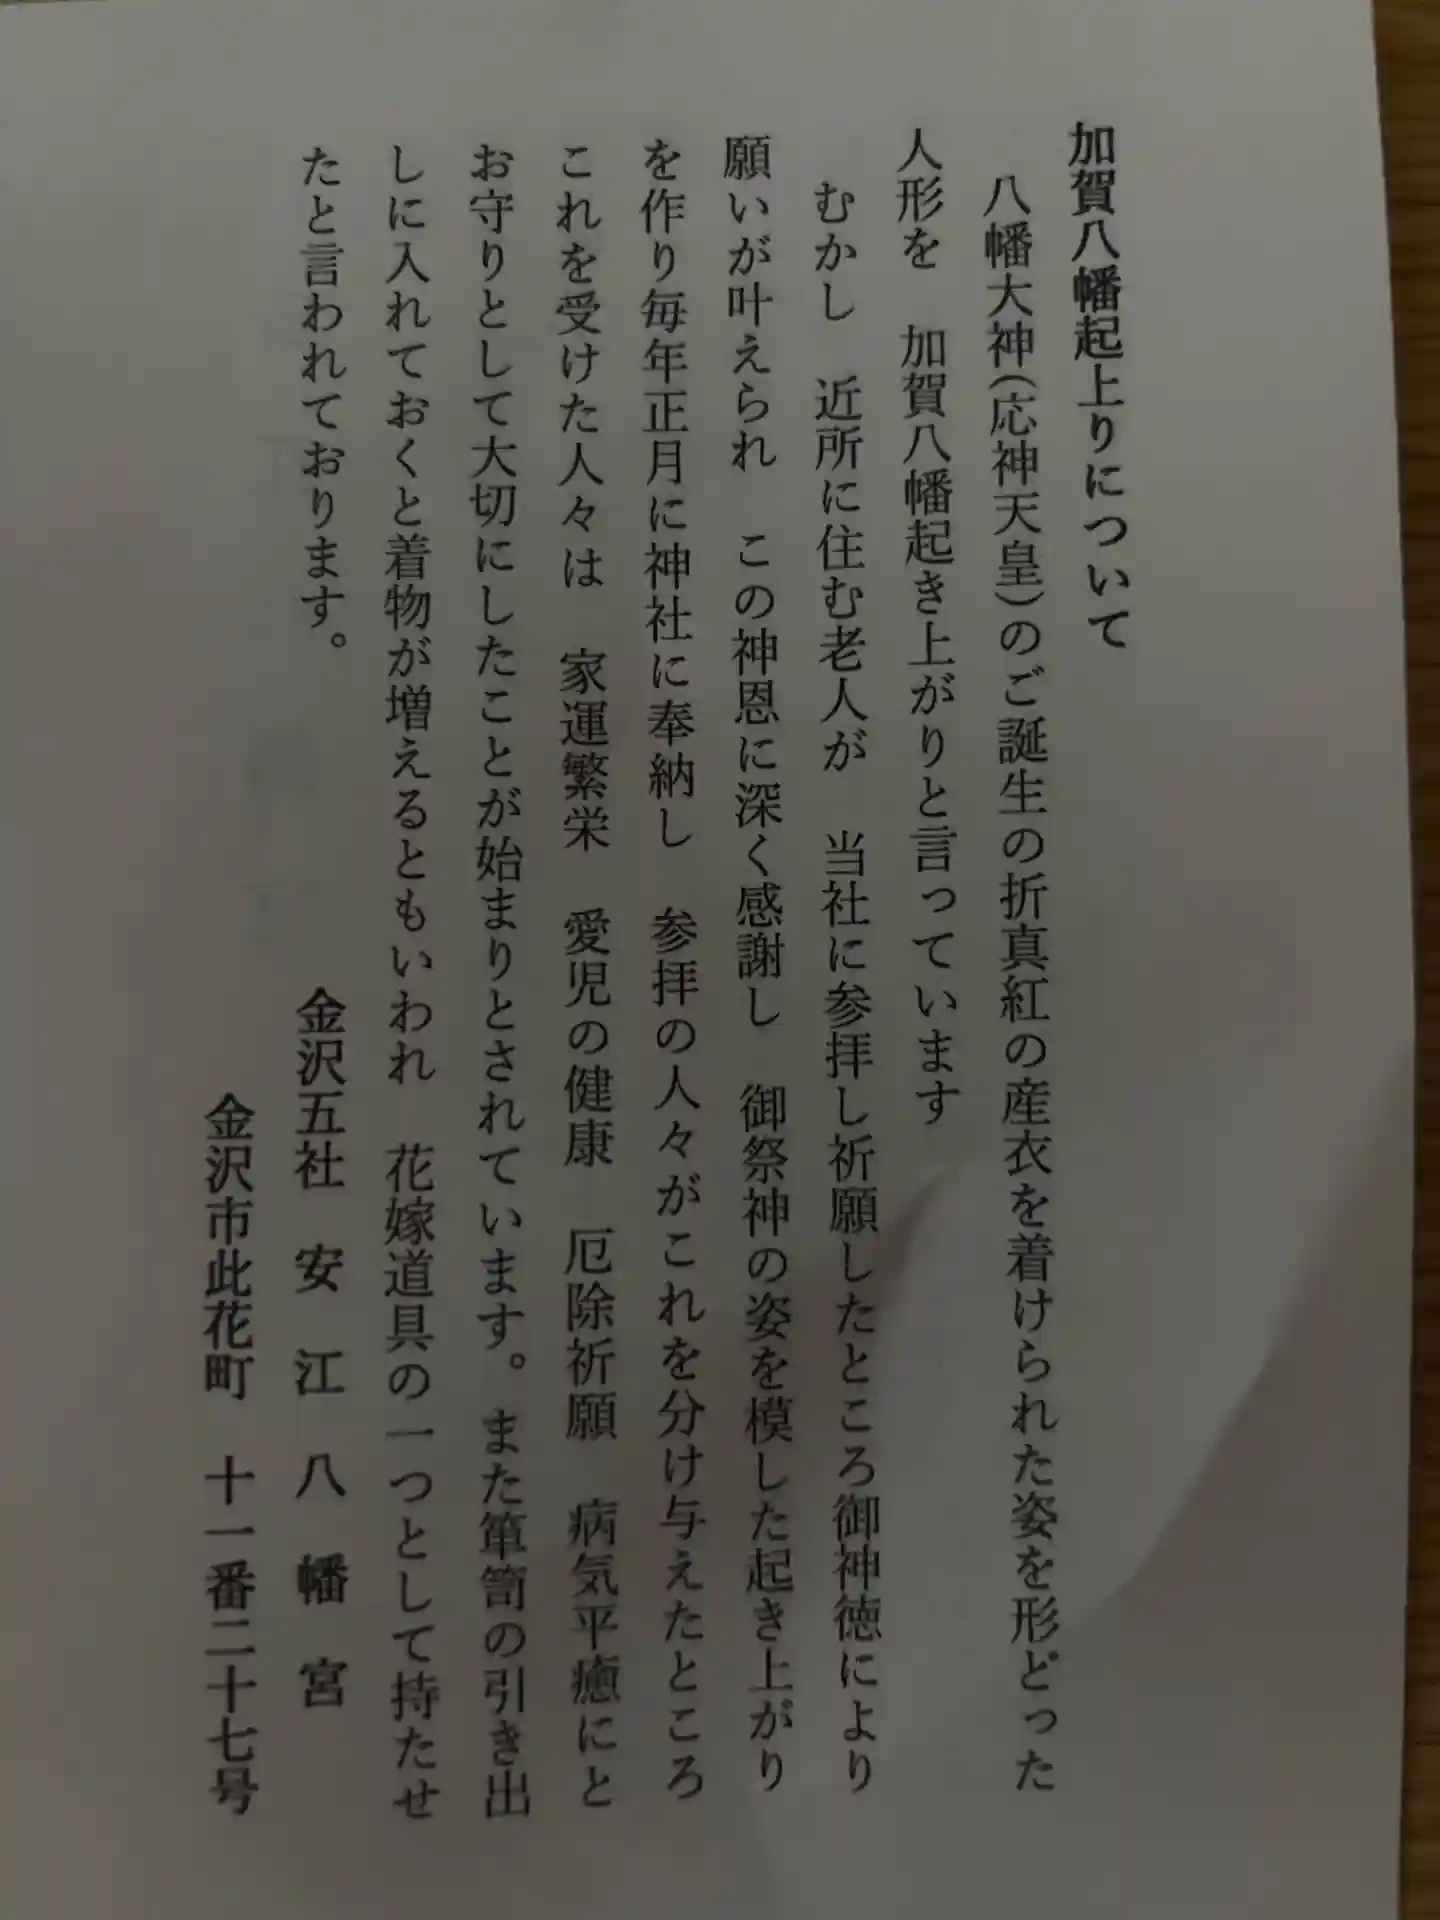 加賀八幡起上りについて
八幡大神(応神天皇)のご誕生の折真紅の産衣を着けられた姿を形どった
人形を　加賀八幡起き上がりと言っています
むかし　近所に住む老人が　当社に参拝し祈願したところ御神徳により
願いが叶えられ　この神恩に深く感謝し　御祭神の姿を模した起き上がり
を作り毎年正月に神社に奉納し　参拝の人々がこれを分け与えたところ
これを受けた人々は　家運繁栄　愛児の健康　厄除祈願　病気平癒にと
お守りとして大切にしたことが始まりとされています。また箪笥の引き出
しに入れておくと着物が増えるともいわれ　花嫁道具の一つとして持たせ
たと言われております。
金沢五社　安　江　八　幡　宮
金沢市此花町　十一番二十七号